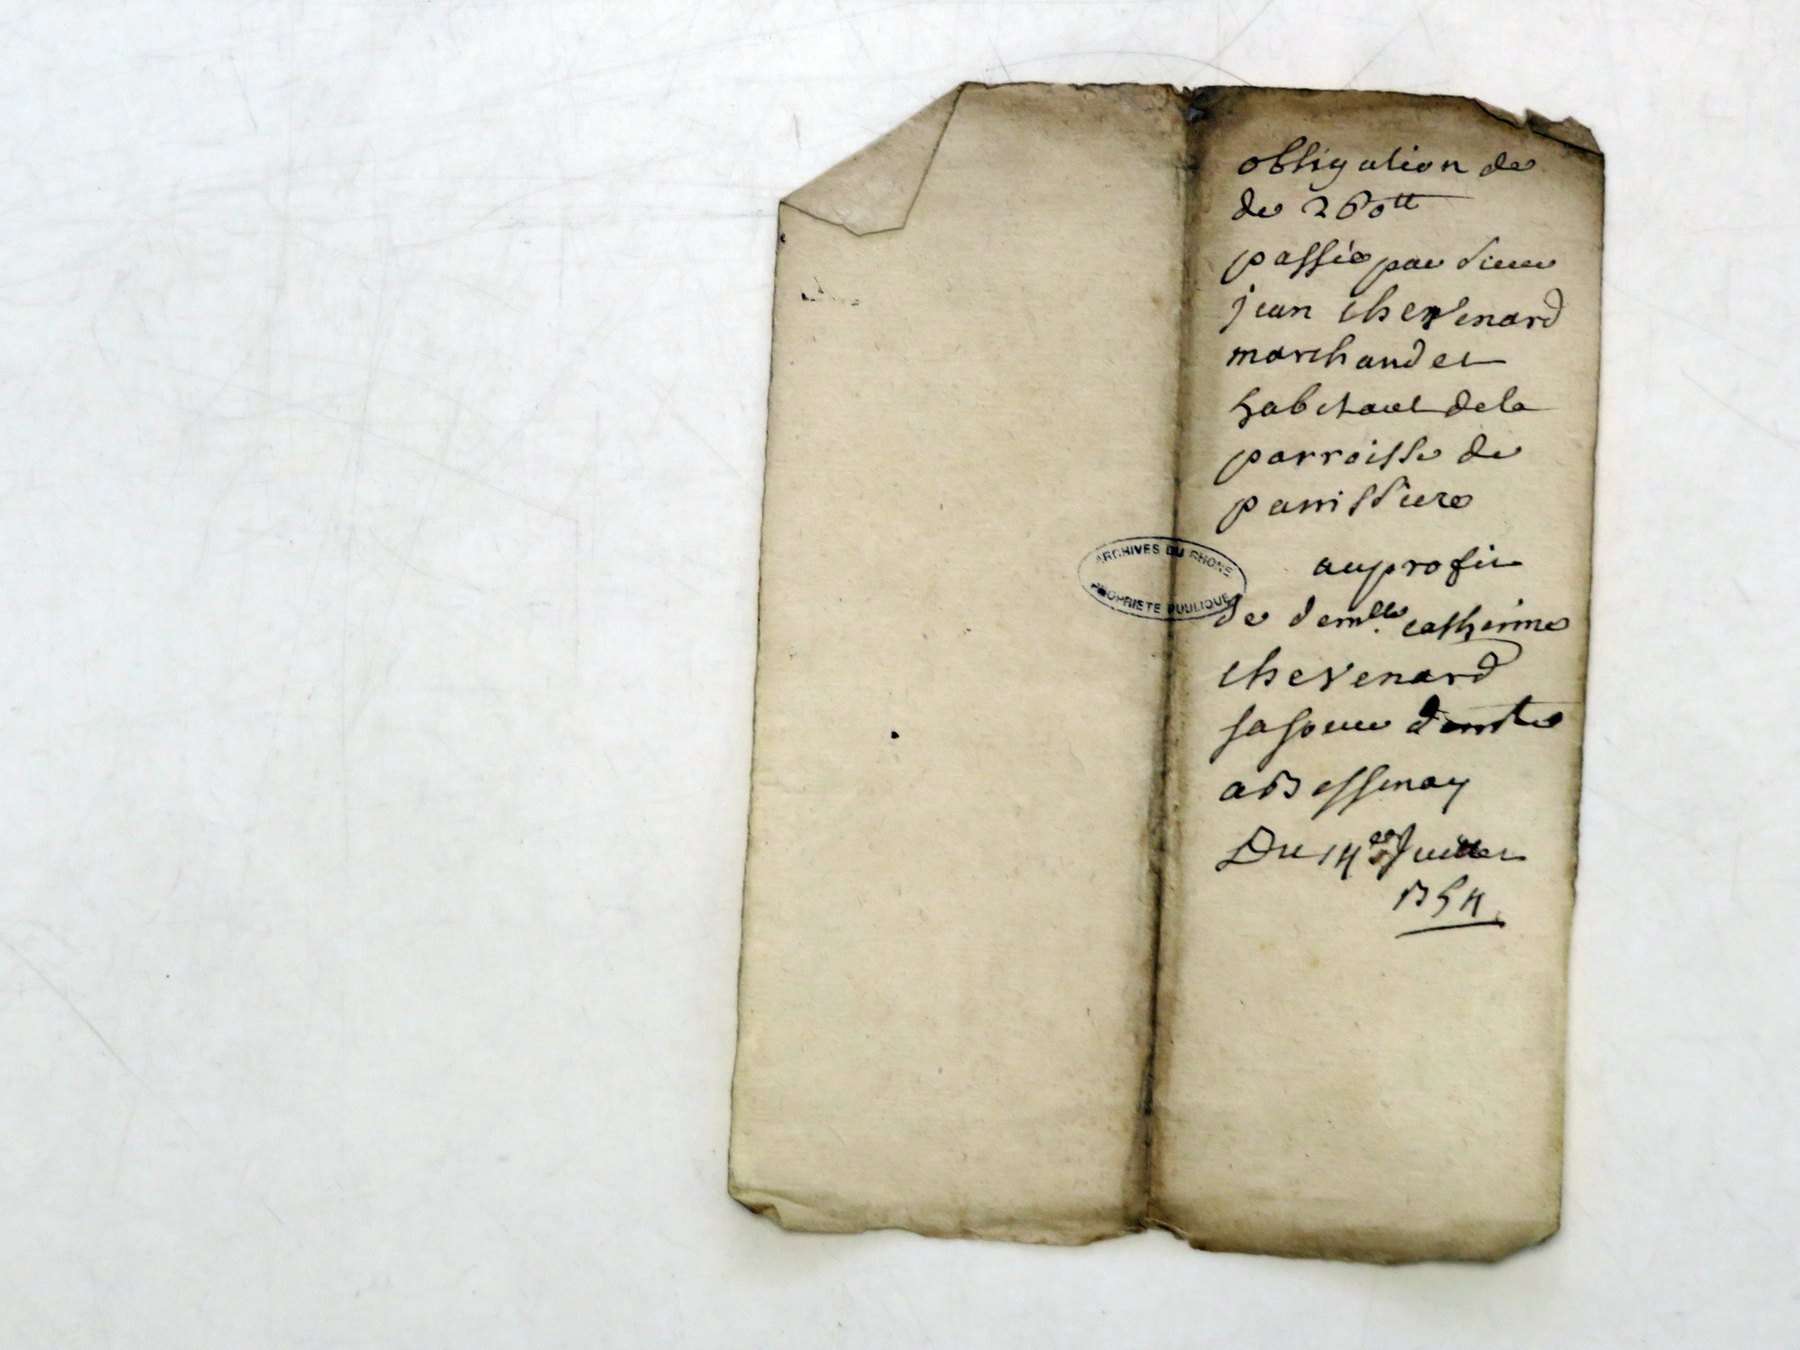 obligation de
de 260tt
passée par sieur
jean chevenard
marchand et
habitant de la
parroisse de
panissiere
au profit
de demlle catherine
chevenard
sa soeur
a Bessenay
Du 14e Juillet
1754
ARCHIVES DU RHONE
PROPRIETE PUBLIQUE